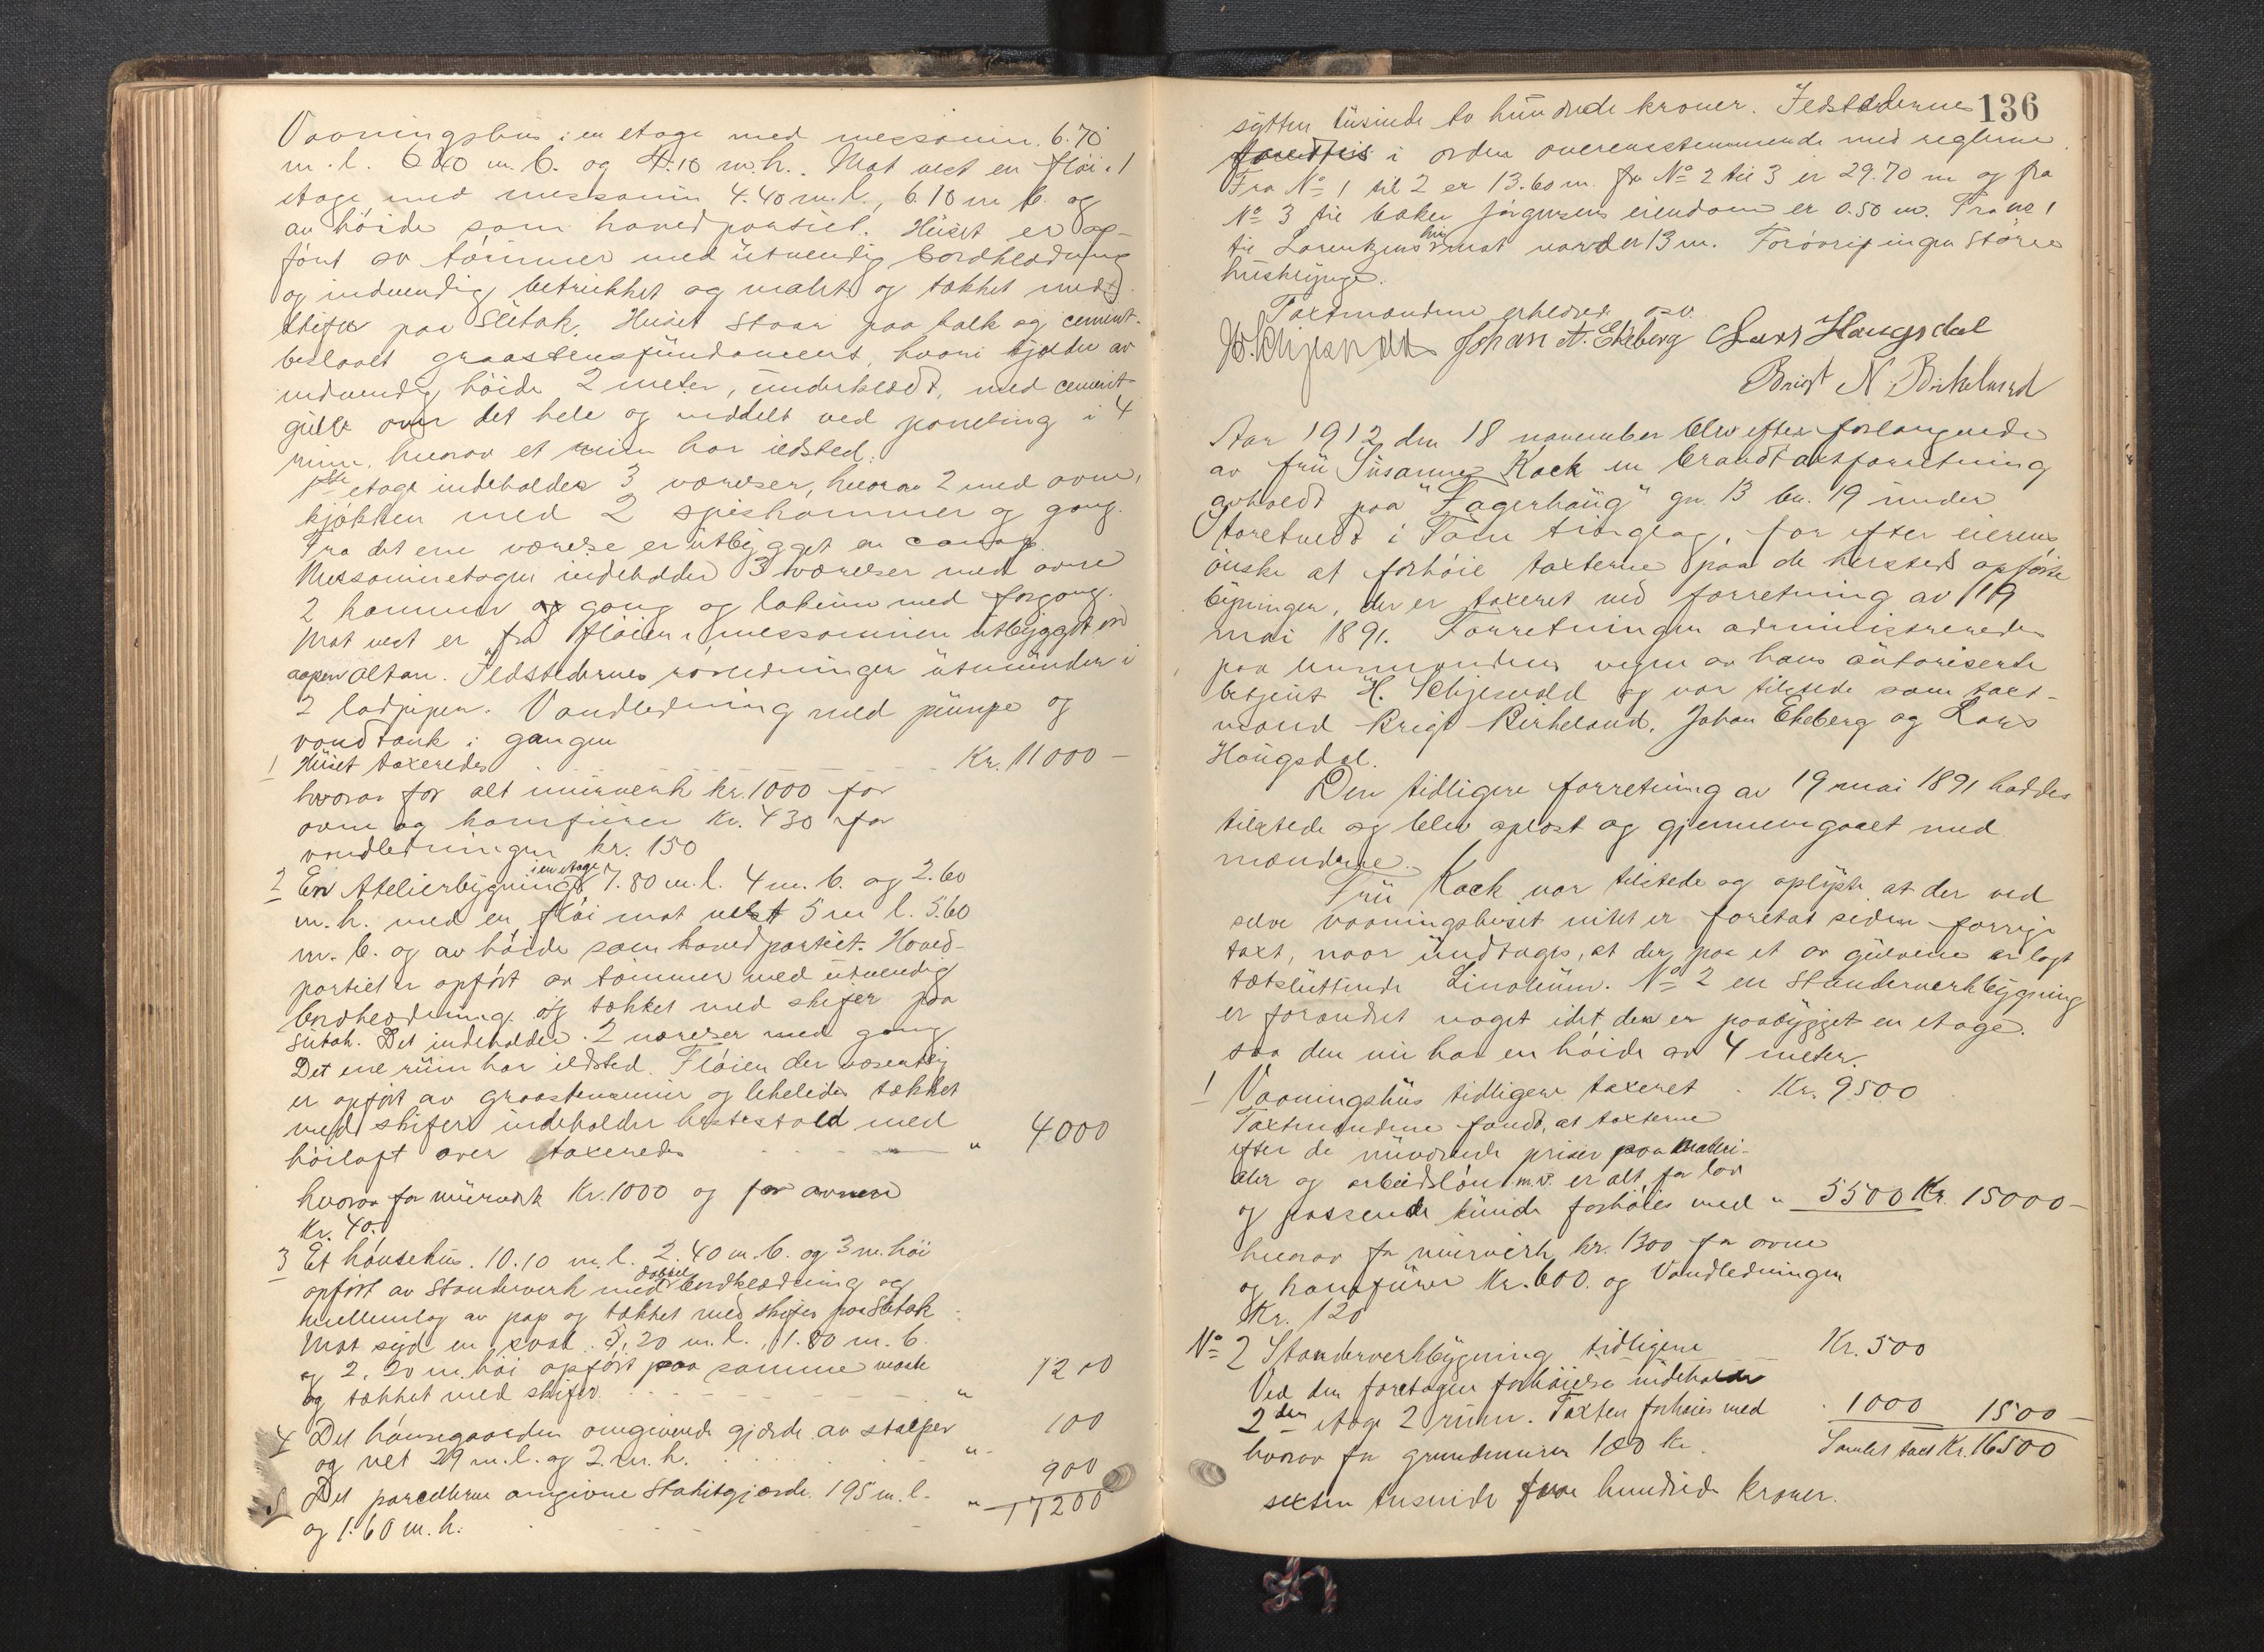 Vaaningshus i en etage med messanin 6.70
m. l. 6.40 m. b. og 4.10 m. h. Mot vest en fløi i 1
etage med messanin 4.40 m. l., 6.10 m b. og
av høide som hovedpartiet. Huset er op-
ført av tømmer med utvendig bordklædning
og indvendig betrukket og malet og tækket med
skifer paa sutak. Huset staar paa kalk og cement-
beslaaet graastensfundament, hvori kjælder av
indvendig høide 2 meter, underklædt, med cement-
gulv over det hele og inddelt ved paneling i 4
rum, hvorav et rum har ildsted.
1ste etage indeholder 3 værelser, hvorav 2 med ovne,
kjøkken med 2 spiskammer og gang.
Fra det ene værelse er utbygget en
Messaninetagen indeholder 3 værelser med ovne
2 kammer og gang og lokum med forgang.
Mot vest er fra fløien i messaninen utbygget en
aapen altan. Ildstedernes rørledninger utmunder i
2 ladpiper. Vandledning med pumpe og
vandtank i gangen
1 Huset taxeredes Kr. 11000 –
hvorav for alt murverk kr. 1000 for
ovne og komfurer Kr. 430 for
vandledningen kr. 150
2 En Atelierbygning i en etage 7.80 m. l. 4 m. b. og 2.60
m. h. med en fløi mot vest 5 m l. 5.60
m. b. og av høide som hovedpartiet. Hoved-
partiet er opført av tømmer med utvendig
bordklædning og tækket med skifer paa
sutak. Det indeholder 2 værelser med gang
Det ene rum har ildsted. Fløien der væsentlig
er opført av graastensmur og tækket
med skifer indeholder hestestald med
høiloft over taxeredes " 4000
hvorav for murverk Kr. 1000 og for ovnene
Kr. 40.
3 Et hønsehus. 10.10 m. l. 2.40 m. b. og 3 m. høi
opført av standerverk med dobbel bordklædning og
mellemlag av pap og tækket med skifer paa sutak
Mot syd en sval 5,20 m. l., 1.80 m. b.
og 2.20 m. høi opført paa samme maate
og tækket med skifer " 1200
4 Det hønsegaarden omgivende gjærde av stolper
og net 29 m. l. og 2. m. h. " 100
5 Det parcellerne omgivne Stakitgjærde 195 m. l.
og 1.60 m. h. " 900
17200
136
sytten tusinde to hundrede kroner. Ildstederne
i orden overensstemmende med reglerne.
Fra No 1 til 2 er 13.60 m. fra No 2 til 3 er 29.70 m og fra
No 3 til baker Jørgensens eiendom er 0.50 m. Fra no 1
til Lorentzens hus mot nord er 13 m. Forøvrig ingen større
husklynge.
Taxtmændene erklæred osv.
H. Schjesvold Johan A. Ekeberg Lars Haugsdal
Brigt N. Birkeland
Aar 1912 den 18 november blev efter forlangende
av fru Susanne Kock en brandtaxtforretning
avholdt paa "Fagerhaug" gn. 13 bn. 19 under
Storetvedt i Fane tinglag, for efter eierens
ønske at forhøie taxterne paa de hersteds opførte
bygninger, der er taxeret ved forretning av 19
mai 1891. Forretningen administreredes
paa lensmandens vegne av hans autoriserte
betjent H. Schjesvold og var tilstede som taxt-
mænd Brigt Birkeland, Johan Ekeberg og Lars
Haugsdal.
Den tidligere forretning av 19 mai 1891 haddes
tilstede og blev oplæst og gjennemgaaet med
mændene.
Fru Kock var tilstede og oplyste at der ved
selve vaaningshuset intet er foretat siden forrige
taxt, naar undtages, at der paa et av gulvene er lagt
tætsluttende Linoleum. No 2 en Standerverkbygning
er forandret noget idet der er paabygget en etage.
saa den nu har en høide av 4 meter.
1 Vaaningshus tidligere taxeret Kr. 9500
Taxtmændene fandt, at taxterne
efter de nuværende priser paa materi-
aler og arbeidsløn m.v. er alt for lav
og passende kunde forhøies med " 5500 Kr. 15000 –
hvorav for murverk kr. 1300 for ovne
og komfurer Kr. 600. og Vandledningen
Kr. 120
No 2 Standerverkbygning tidligere Kr. 500
Ved den foretagne forhøielse indeholder
2den etage 2 rum. Taxten forhøies med 1000 1500 –
hvorav for grundmuren 100 kr. Samlet taxt Kr. 16500
sexten tusinde fem hundrede kroner.